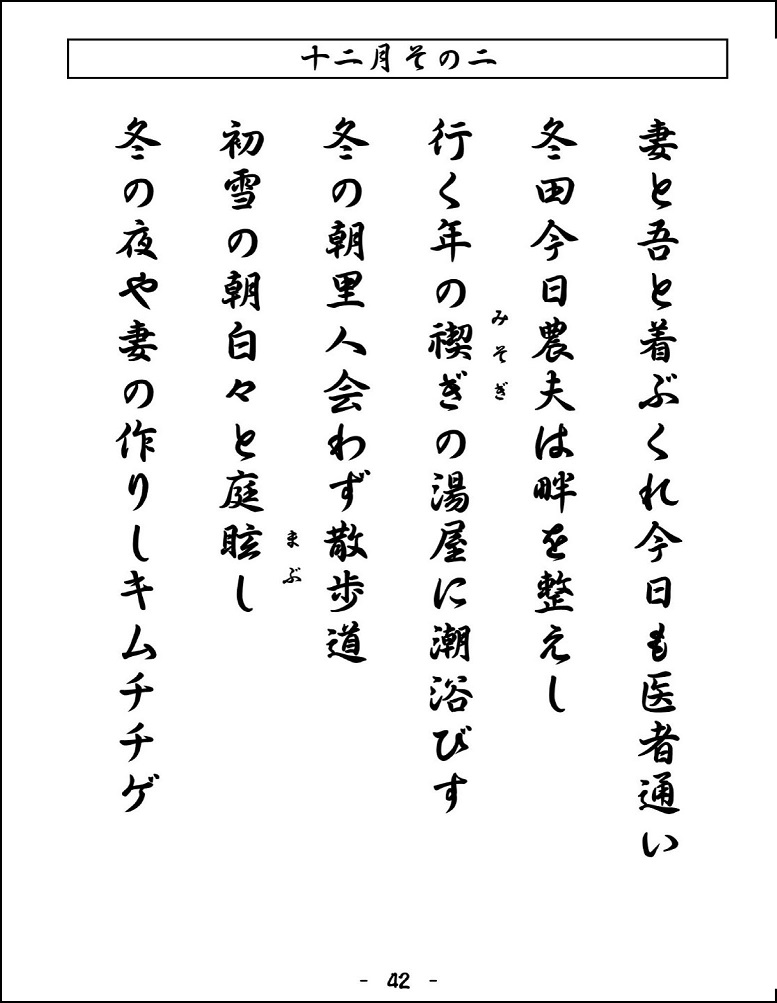 十二月その二
妻と吾と着ぶくれ今日も医者通い
冬田今日農夫は畔を整えし
みそぎ
行く年の禊ぎの湯屋に潮浴びす
冬の朝里人会わず散歩道
まぶ
初雪の朝白々と庭眩し
冬の夜や妻の作りしキムチチゲ
- 42 -